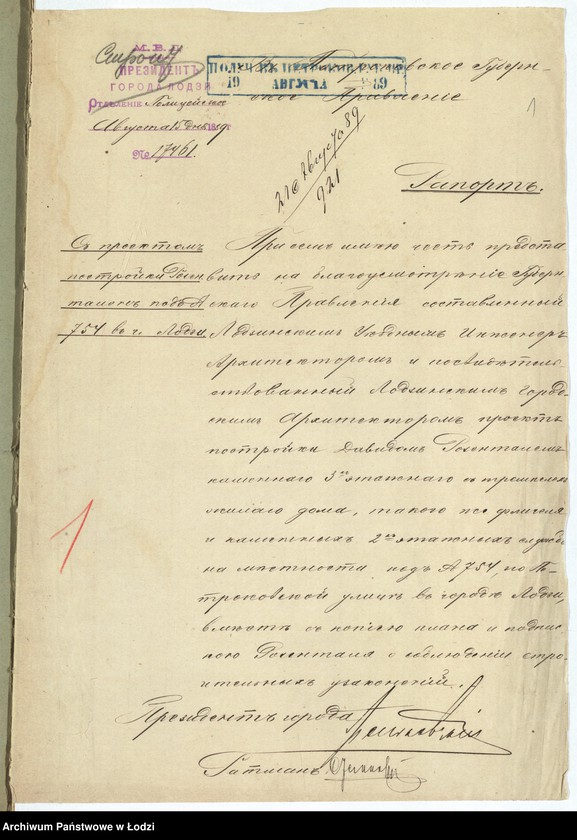 М. В. Д.
Строит
ПРЕЗИДЕНТЪ
ГОРОДА ЛОДЗИ
Отдѣленіе Полицейское
Августа 15 дня 1889 г.
№ 17461
ПОЛУЧ. ВЪ ПЕТРОКОВ. ГУБ. ПР.
19 АВГУСТА 89
Въ Петроковское Губерн-
ское Правленіе
1
21 Августа 89
921
Рапортъ.
Съ проектомъ
постройки Розен
талемъ подъ №
754 въ г. Лодзи.
При семъ имѣю честь предста
вить на благоусмотрѣніе Губерн
скаго Правленія составленный
Лодзинскимъ Уѣзднымъ Инженеръ
Архитекторомъ и посвидѣтель
ствованный Лодзинскимъ Город
скимъ Архитекторомъ проектъ
постройки Давидомъ Розенталемъ
каменнаго 3хъ этажнаго съ
жилаго дома, такого же флигеля
и каменныхъ 2хъ этажныхъ службъ
на мѣстности подъ № 754, по Пе-
троковской улицѣ въ городѣ Лодзи,
вмѣстѣ съ копіею плана и подпис
кою Розенталя о соблюденіи стро
ительныхъ узаконеній.
Президентъ города
1
Archiwum Państwowe w Łodzi